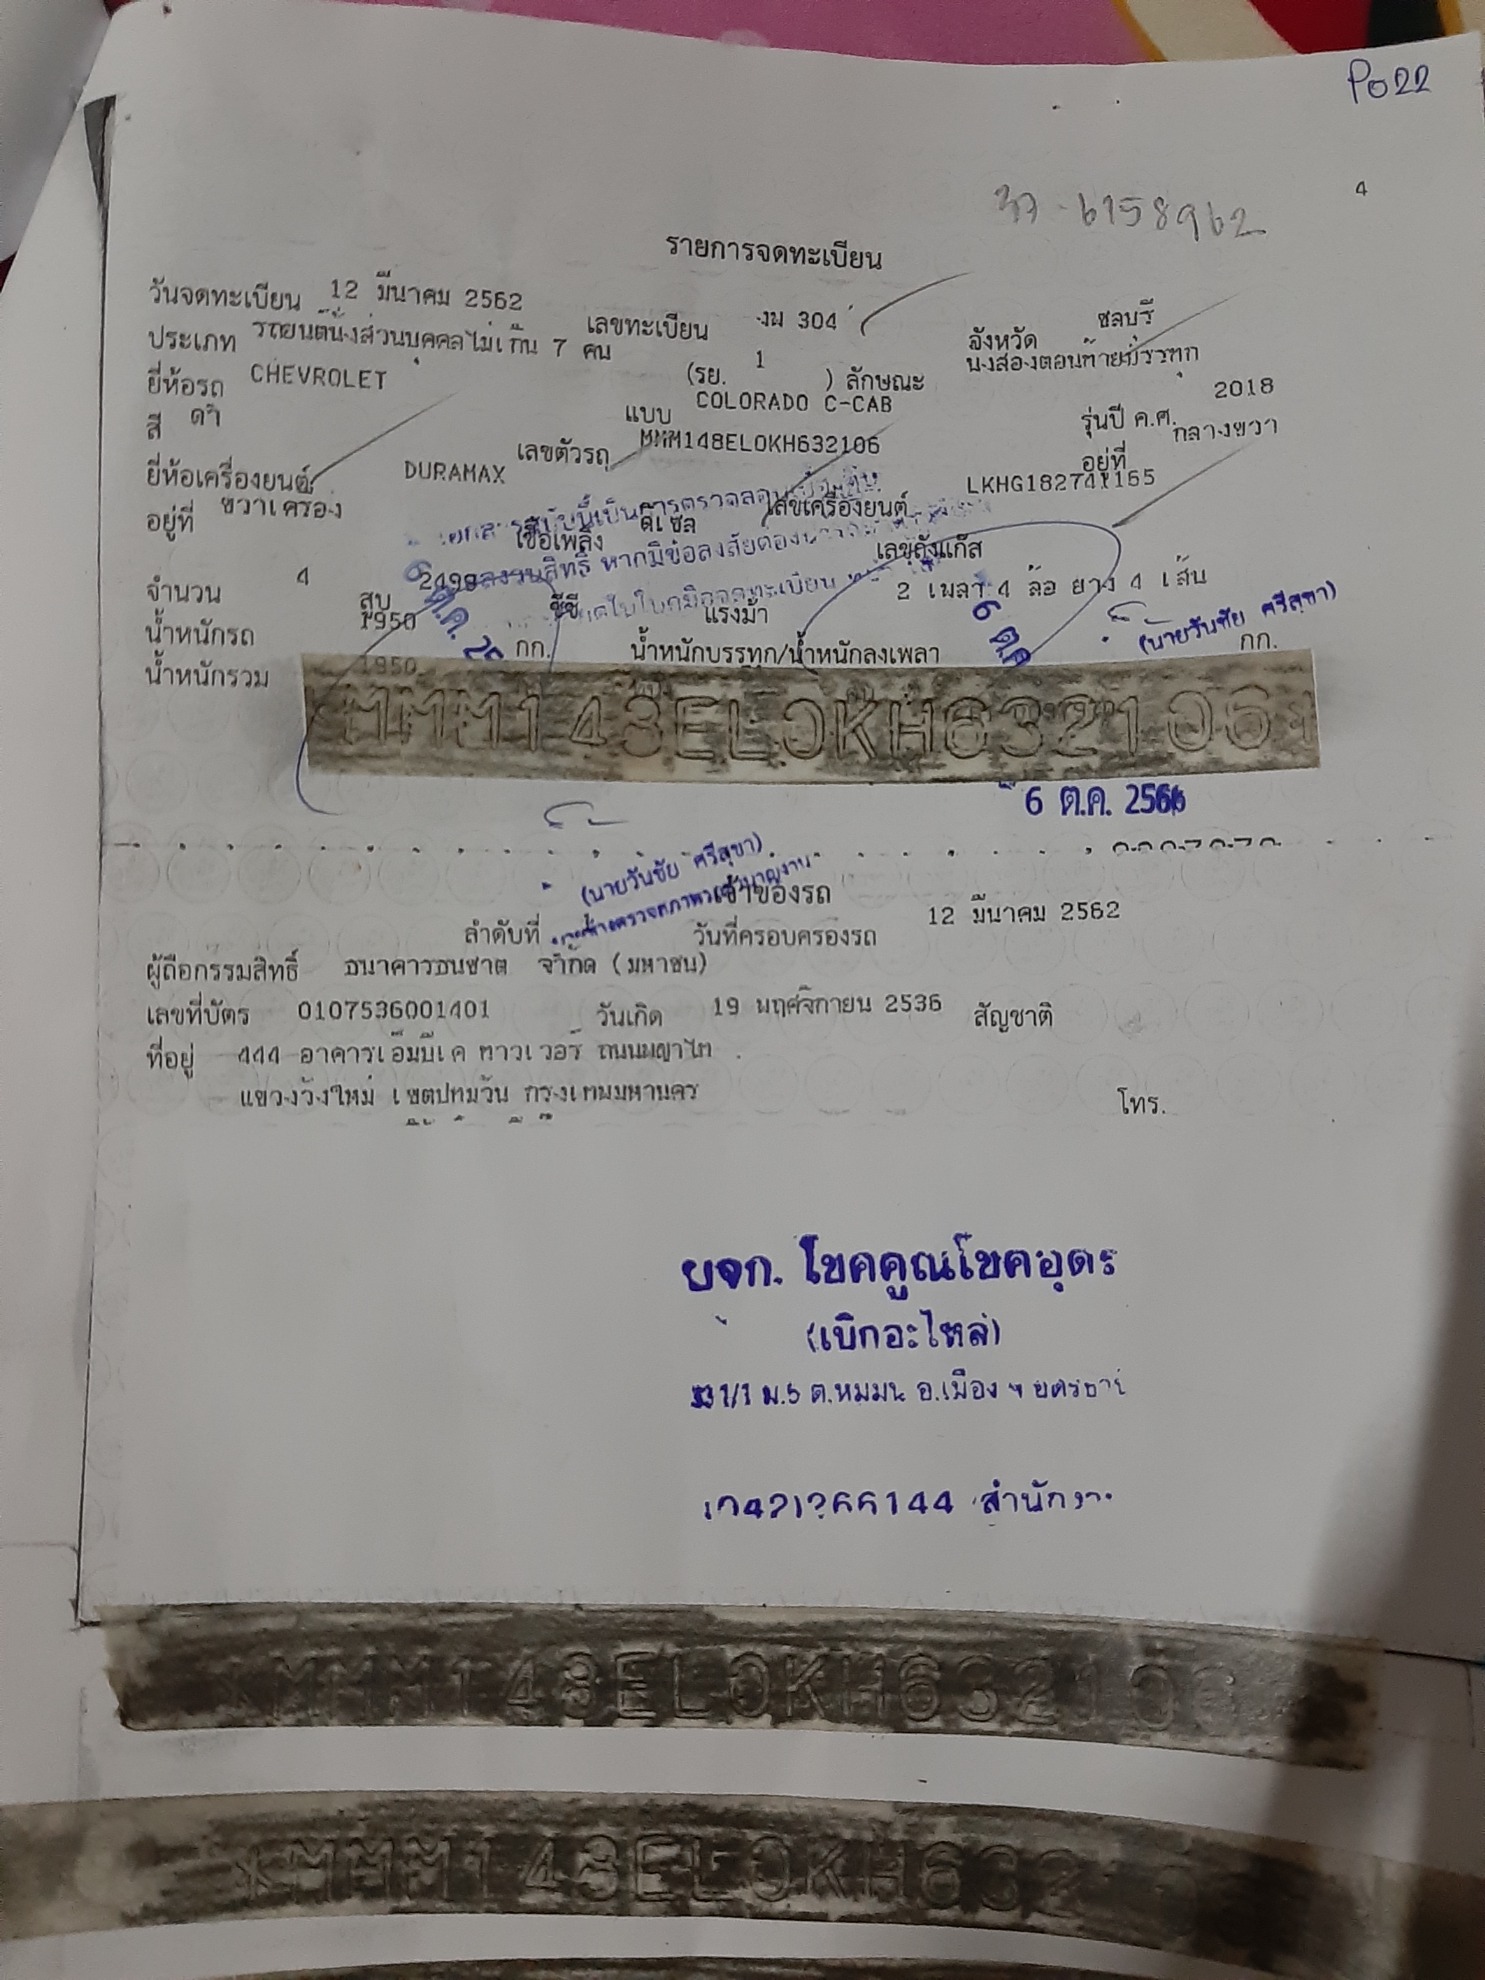 P022
4
37-6158962
รายการจดทะเบียน
วันจดทะเบียน 12 มีนาคม 2562 เลขทะเบียน งม 304 จังหวัด ชลบุรี
ประเภท รถยนต์นั่งส่วนบุคคลไม่เกิน 7 คน (รย. 1 ) ลักษณะ นั่งสองตอนท้ายบรรทุก
ยี่ห้อรถ CHEVROLET แบบ COLORADO C-CAB รุ่นปี ค.ศ. 2018
สี ดำ เลขตัวรถ MMM148EL0KH632106 อยู่ที่ กลางขวา
ยี่ห้อเครื่องยนต์ DURAMAX เลขเครื่องยนต์ LKHG182741165
อยู่ที่ ขวาเครื่อง เชื้อเพลิง ดีเซล เลขถังแก๊ส
จำนวน 4 สูบ 2499 ซีซี แรงม้า 2 เพลา 4 ล้อ ยาง 4 เส้น
น้ำหนักรถ 1950 กก. น้ำหนักบรรทุก/น้ำหนักลงเพลา กก.
น้ำหนักรวม 1950
(นายวันชัย ศรีสุขา)
6 ต.ค.
MMM148EL0KH632106
6 ต.ค. 2566
(นายวันชัย ศรีสุขา)
เจ้าของรถ
ลำดับที่ วันที่ครอบครองรถ 12 มีนาคม 2562
ผู้ถือกรรมสิทธิ์ ธนาคารธนชาต จำกัด (มหาชน)
เลขที่บัตร 0107536001401 วันเกิด 19 พฤศจิกายน 2536 สัญชาติ
ที่อยู่ 444 อาคารเอ็มบีเค ทาวเวอร์ ถนนพญาไท
แขวงวังใหม่ เขตปทุมวัน กรุงเทพมหานคร โทร.
หจก. โชคคูณโชคอุดร
(เบิกอะไหล่)
1/1 ม.5 ต.หมูม่น อ.เมือง จ อุดรธานี
สำนักงาน
*MMM148EL0KH632106
*MMM148EL0KH632106